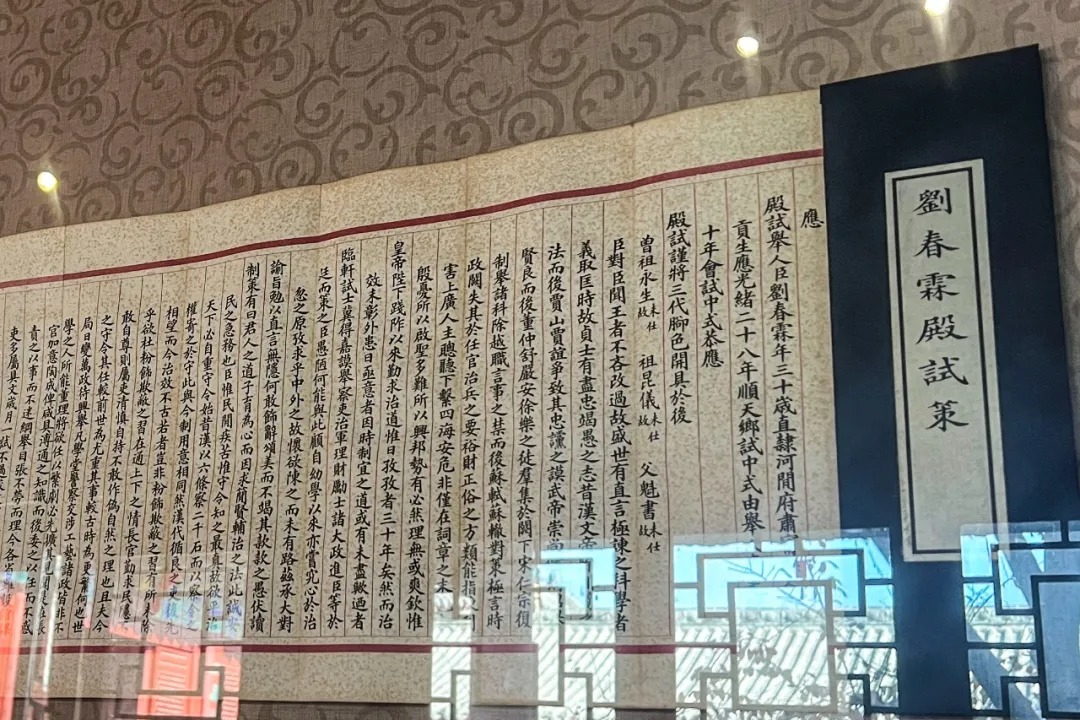 劉春霖殿試策
應
殿試舉人臣劉春霖年三十歲直隸河間府肅
貢生應光緒二十八年順天鄉試中式由舉
十年會試中式恭應
殿試謹將三代腳色開具於後
曾祖永生故未仕 祖昆儀故未仕 父魁書故未仕
臣對臣聞王者不吝改過故盛世有直言極諫之科學者
義取匡時故貞士有盡忠竭愚之志昔漢文帝
法而後賈山賈誼爭致其忠讜之謨武帝崇
賢良而後董仲舒嚴安徐樂之徒羣集於闕下宋仁宗復
制舉諸科除越職言事之禁而後蘇軾蘇轍對策極言時
政闕失其於任官治兵之要裕財正俗之方類能指
害上廣人主聰聽下繫四海安危非僅在詞章之末
殷憂所以啟聖多難所以興邦勢有必然理無或爽欽惟
皇帝陛下踐阼以來勤求治道惟日孜孜者三十年矣然而治
效未彰外患日亟意者因時制宜之道或有未盡歟過者
臨軒試士冀得嘉謨舉察吏治軍理財勵士諸大政進臣等於
廷而策之臣愚陋何能與此顧自幼學以來亦嘗究心於治
忽之原攷求乎中外之故懷欲陳之而未有路茲承大對
諭旨勉以直言無隱何敢飾辭頌美而不竭其款款之愚伏讀
制策有曰君人之道子育為心而因求簡賢輔治之法此誠安
民之急務也臣惟民間疾苦惟守令知之最真故欲平治
天下必自重守令始昔漢以六條察二千石而以察令之
權寄之於守此與今制用意相同然漢代循良之吏後先
相望而今治效不古若者豈非粉飾欺蔽之習有所未除
乎欲杜粉飾欺蔽之習在通上下之情長官勤求民隱不
敢自尊則屬吏清慎自持不敢作偽自然之理也且夫今
之守令其任較前世為尤重其事較古時為更繁何也世
局日變萬政待興舉凡學堂警察交涉工藝諸政皆非不
學之人所能董理將欲任以繁劇必先擴其見聞是在長
官加意陶成俾咸具溥通之知識而後委之以任而不惑
責之以事而不迷綱舉目張不勞而理今各省
吏多屬具文歲月一試不過